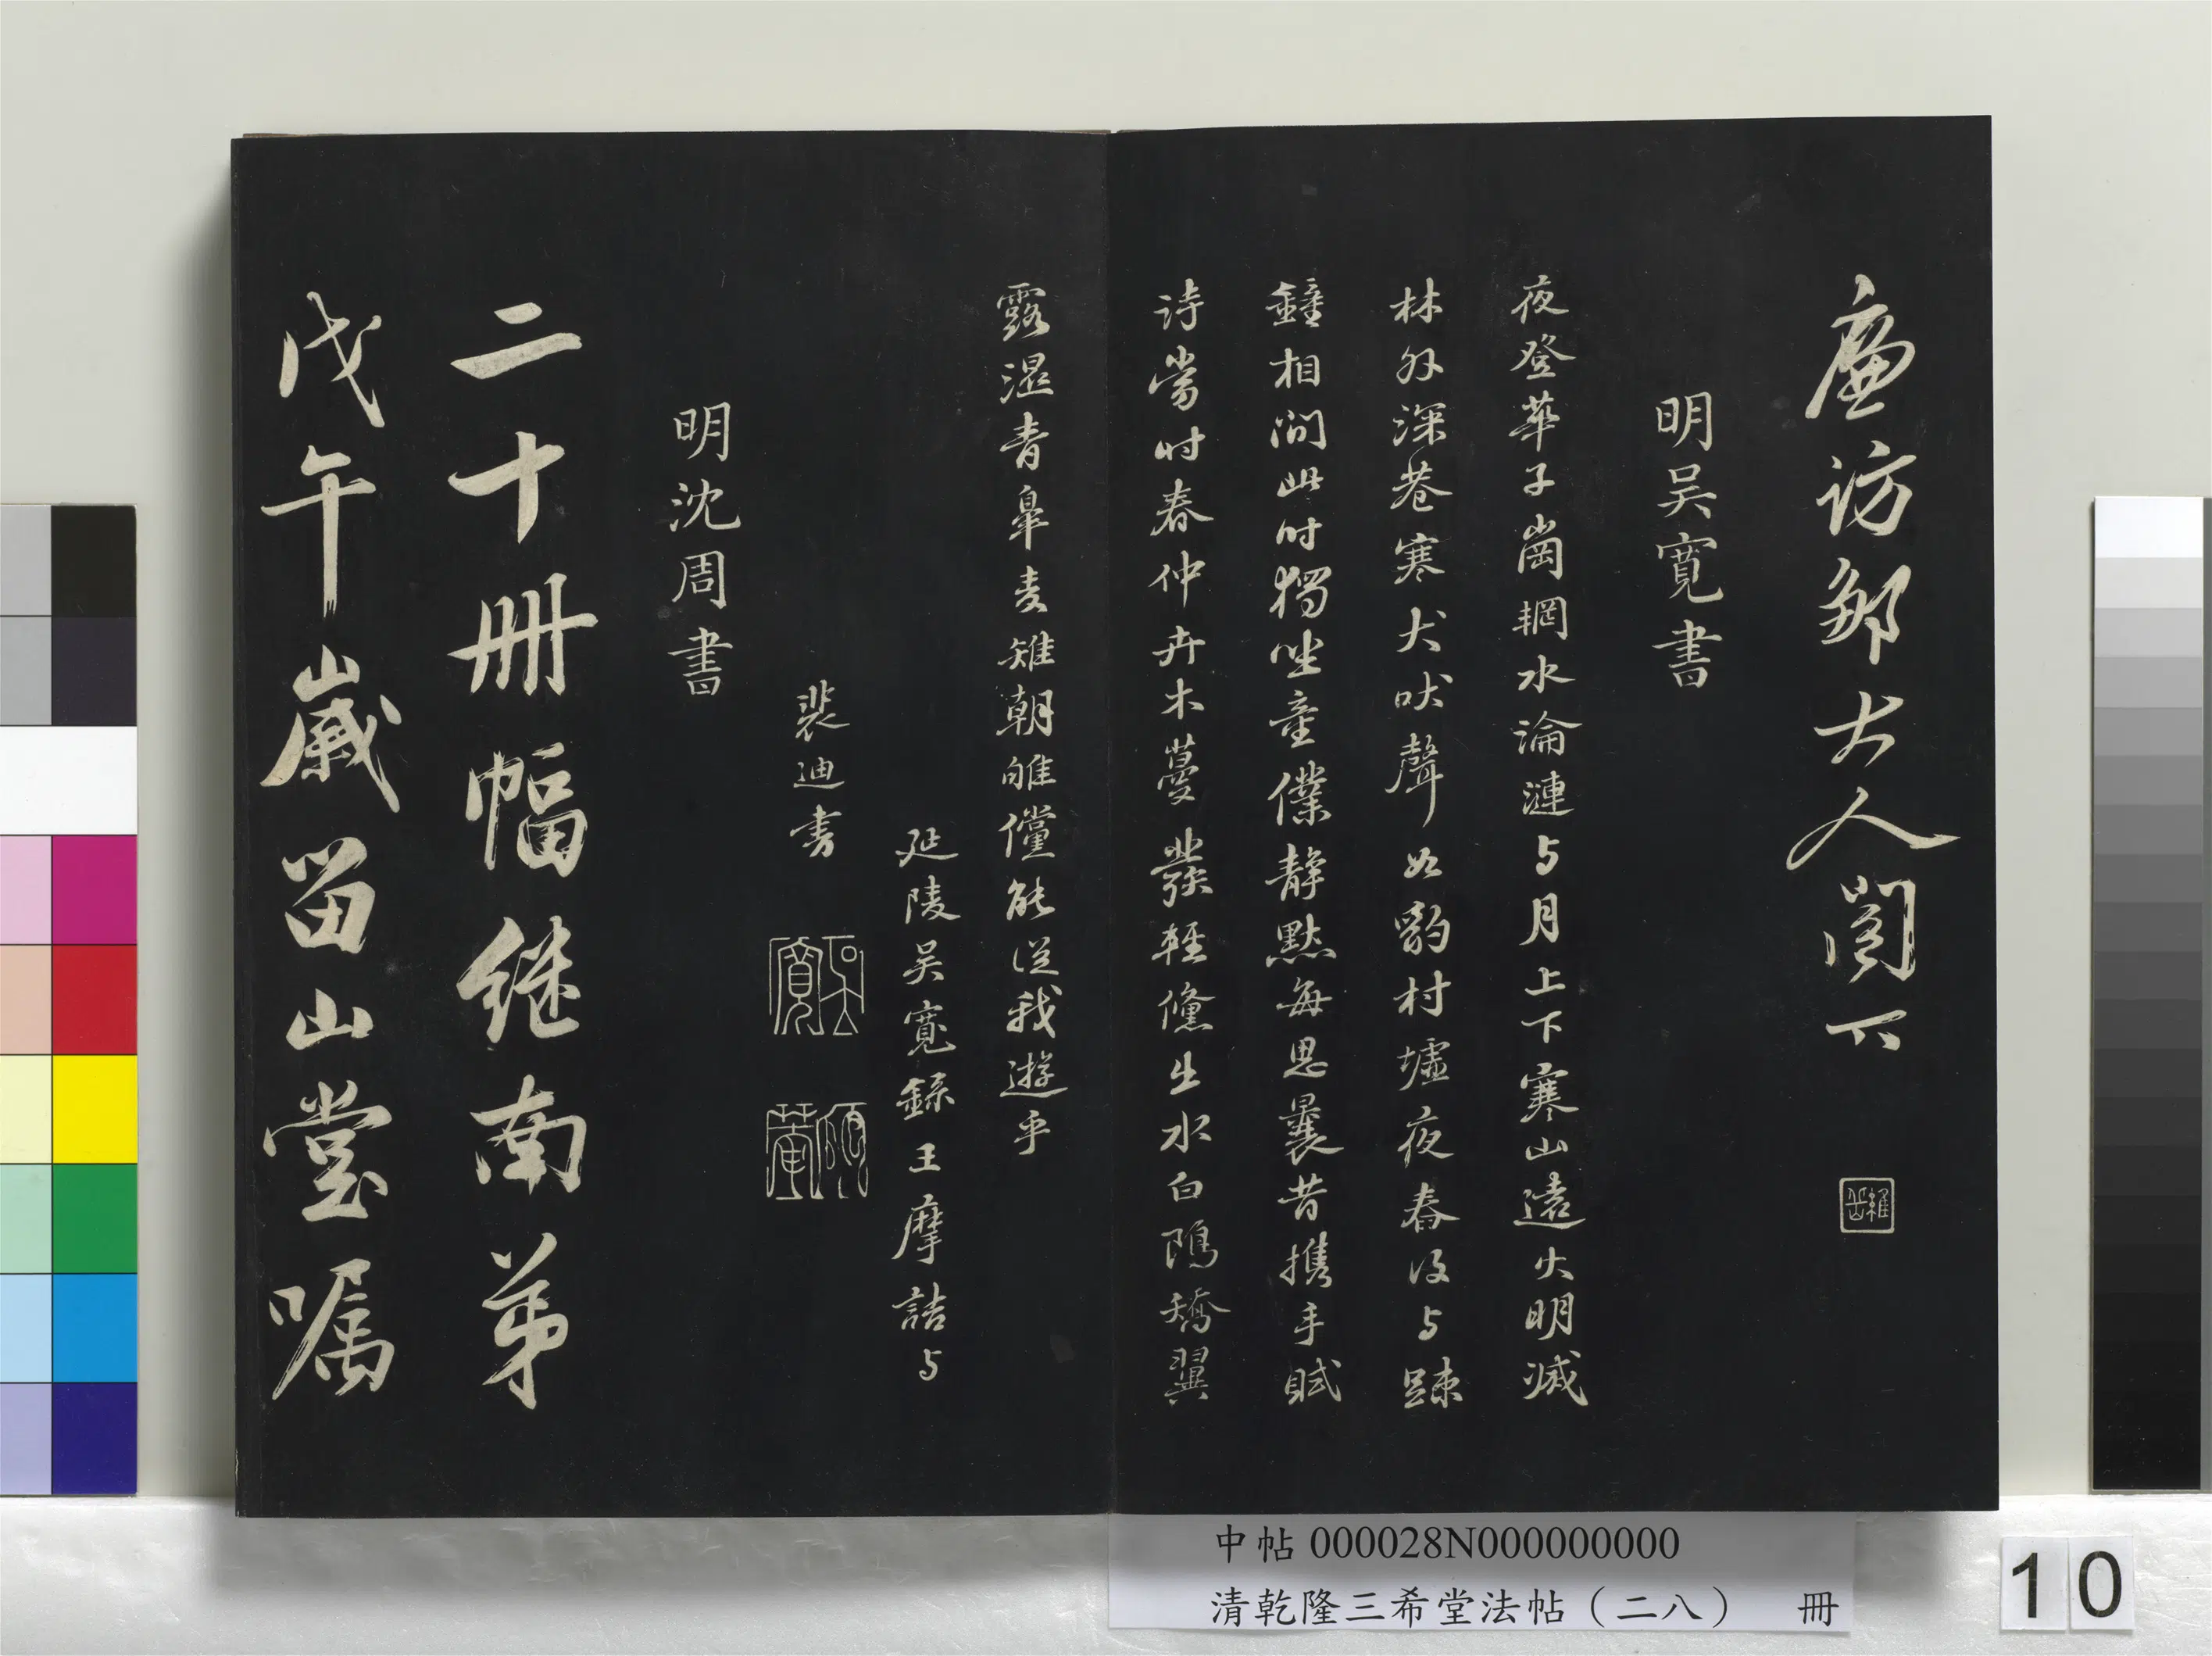 廉訪鄒大人閣下
明吳寬書
夜登華子崗輞水淪漣与月上下寒山遠火明滅
林外深巷寒犬吠聲如豹村墟夜舂復与踈
鐘相間此时獨坐童僕靜默每思曩昔携手賦
詩當时春仲卉木蔓發輕鯈出水白鷗矯翼
露濕青皐麦雉朝雊儻能從我遊乎
延陵吴寬錄王摩詰与
裴迪書
吳寬
原博
明沈周書
二十冊幅继南弟
戊午嵗留山堂嘱
中帖 000028N000000000
清乾隆三希堂法帖（二八） 冊
10